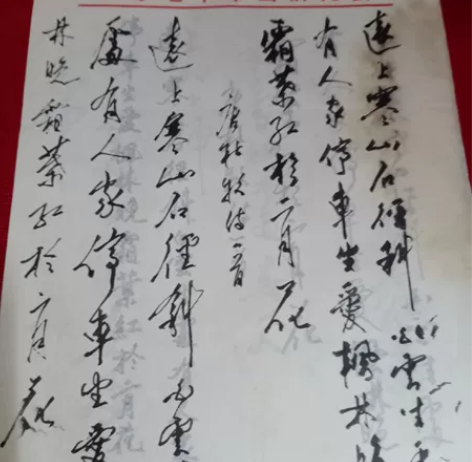 遠上寒山石徑斜白雲生
有人家停車坐愛楓林晚
霜葉紅於二月花
唐杜牧诗一首
遠上寒山石徑斜白雲
處有人家停車坐愛
林晚霜葉紅於二月花